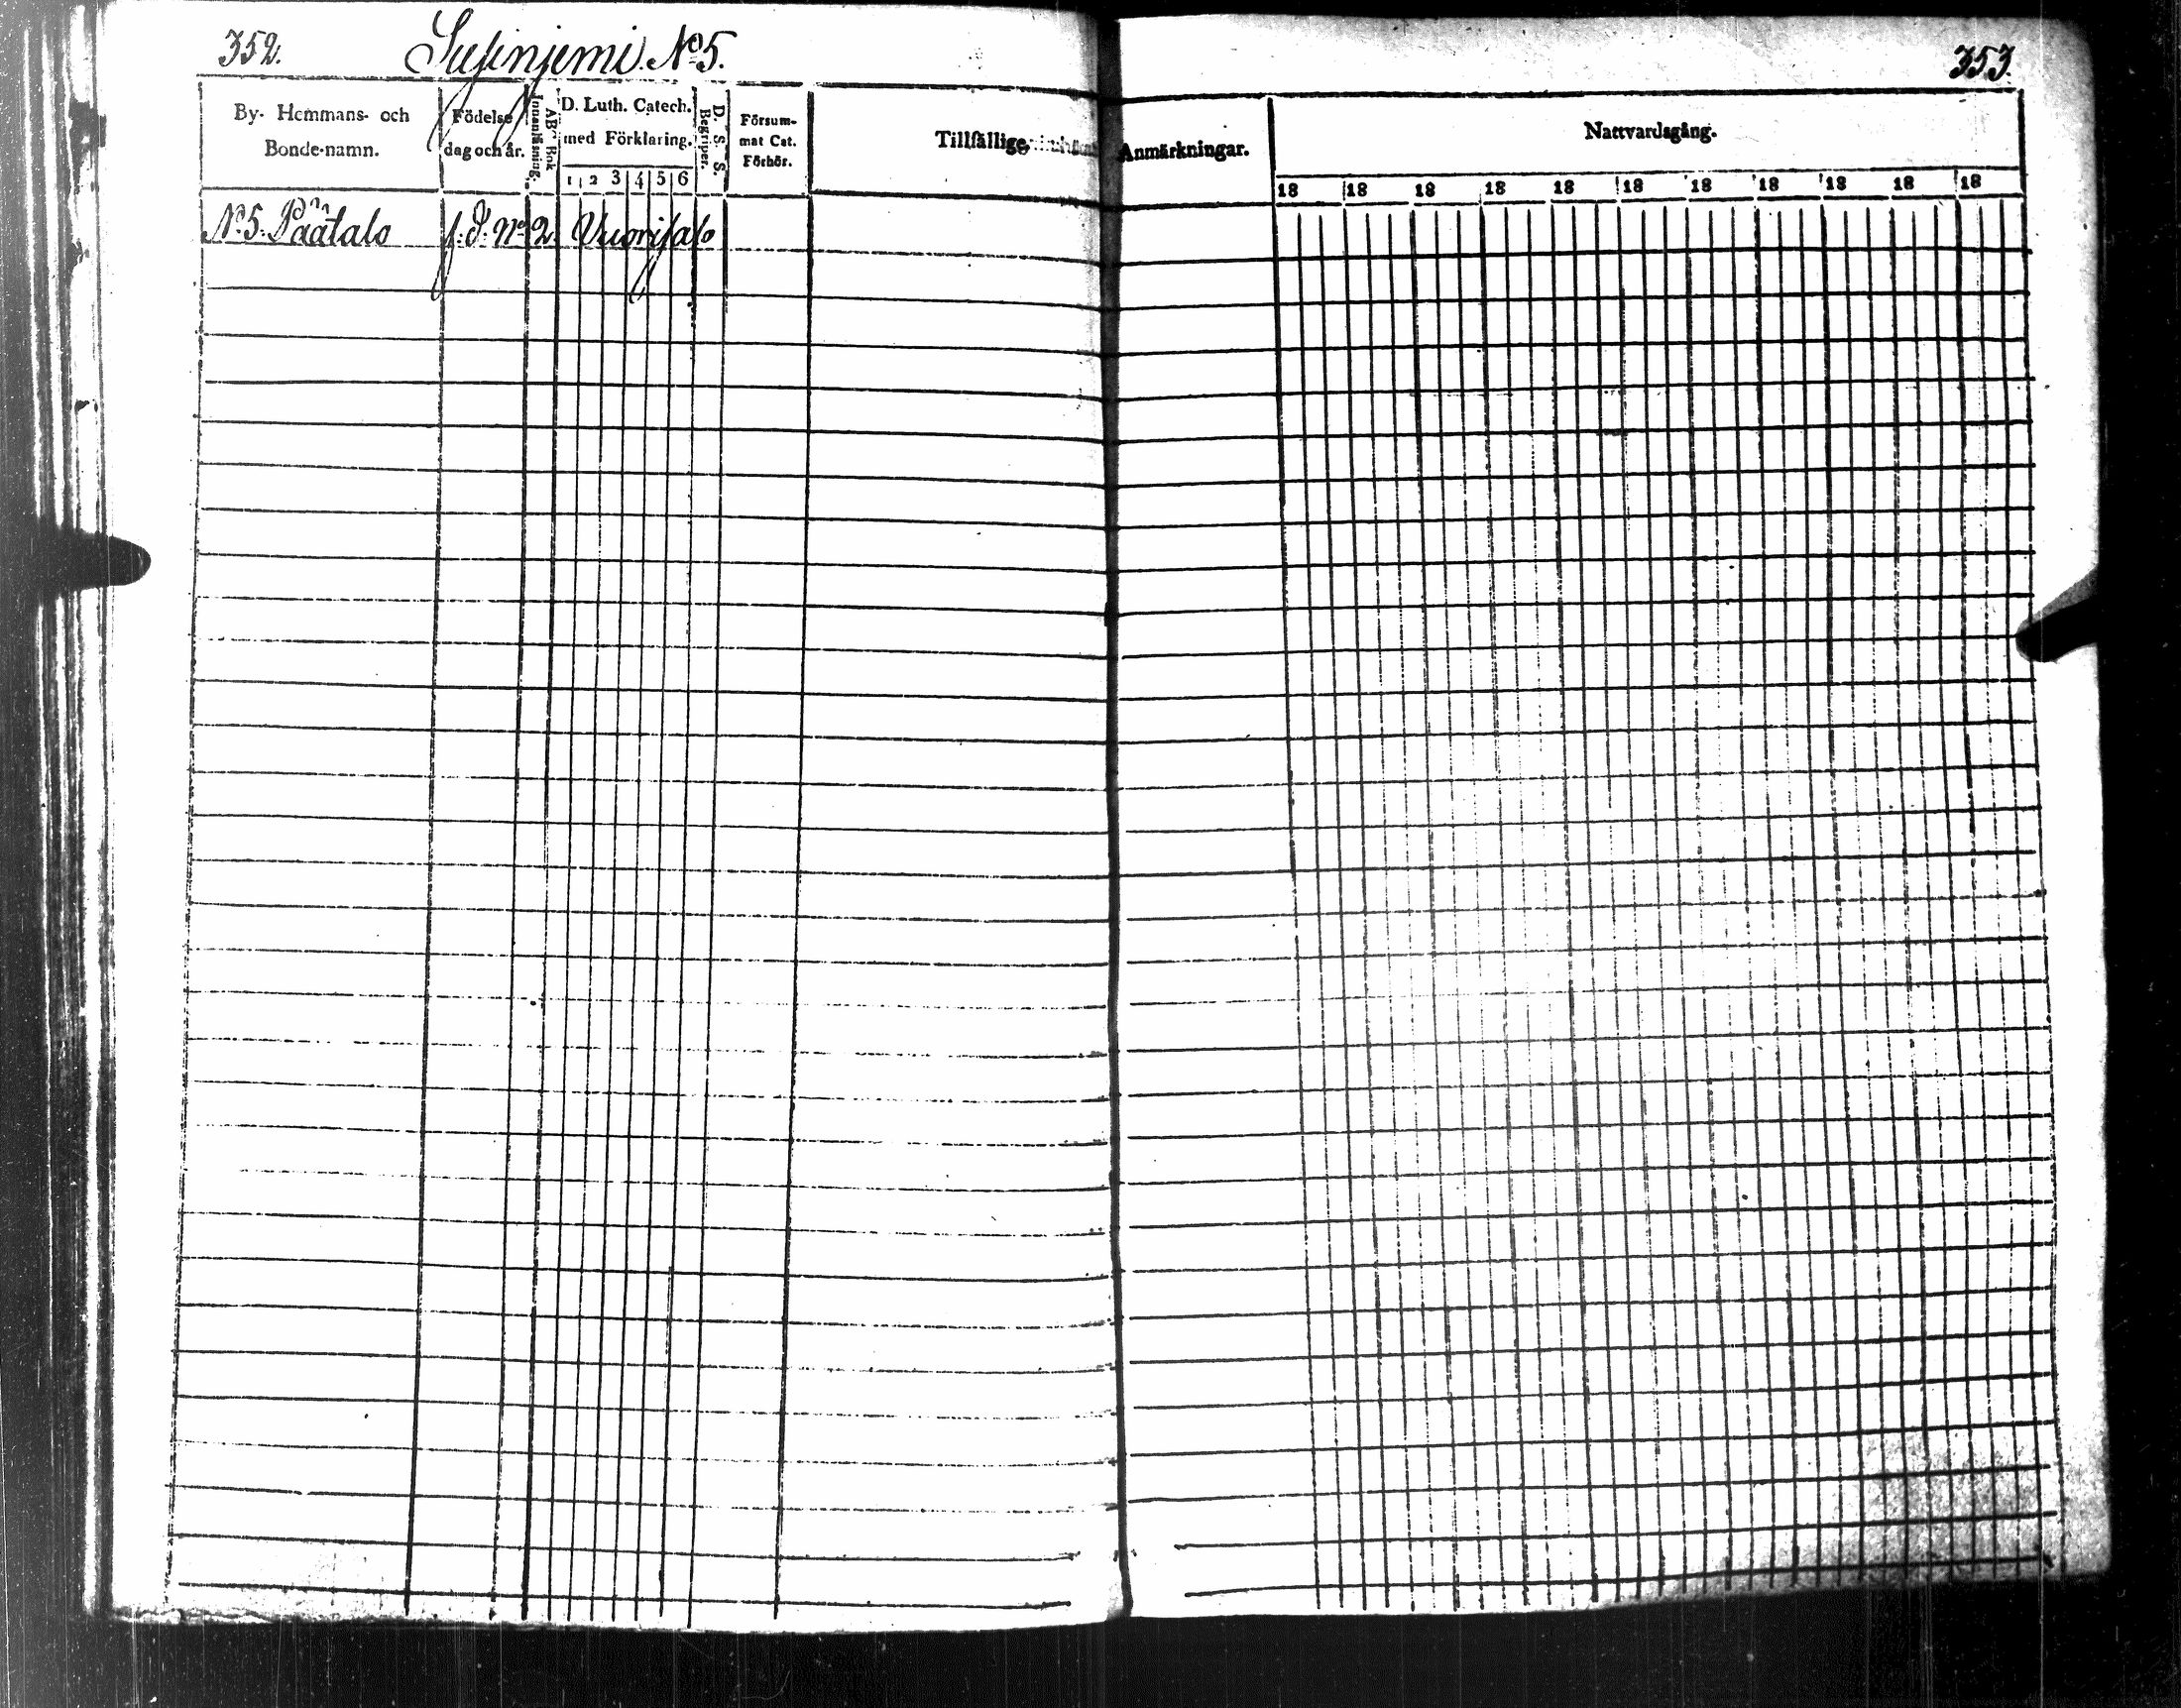 352.
Susinjemi № 5.
By- Hemmans- och
Bonde-namn.
Födelse
dag och år.
AB Bok
Innanläsning.
D. Luth. Catech.
med Förklaring.
1 2 3 4 5 6
D. S. S.
Begriper.
Försum-
mat Cat.
Förhör.
Tillfällige
N:5. Päätalo f. J. No 2. Vuorisalo
353.
Anmärkningar.
Nattvardsgång.
18 18 18 18 18 18 18 18 18 18 18